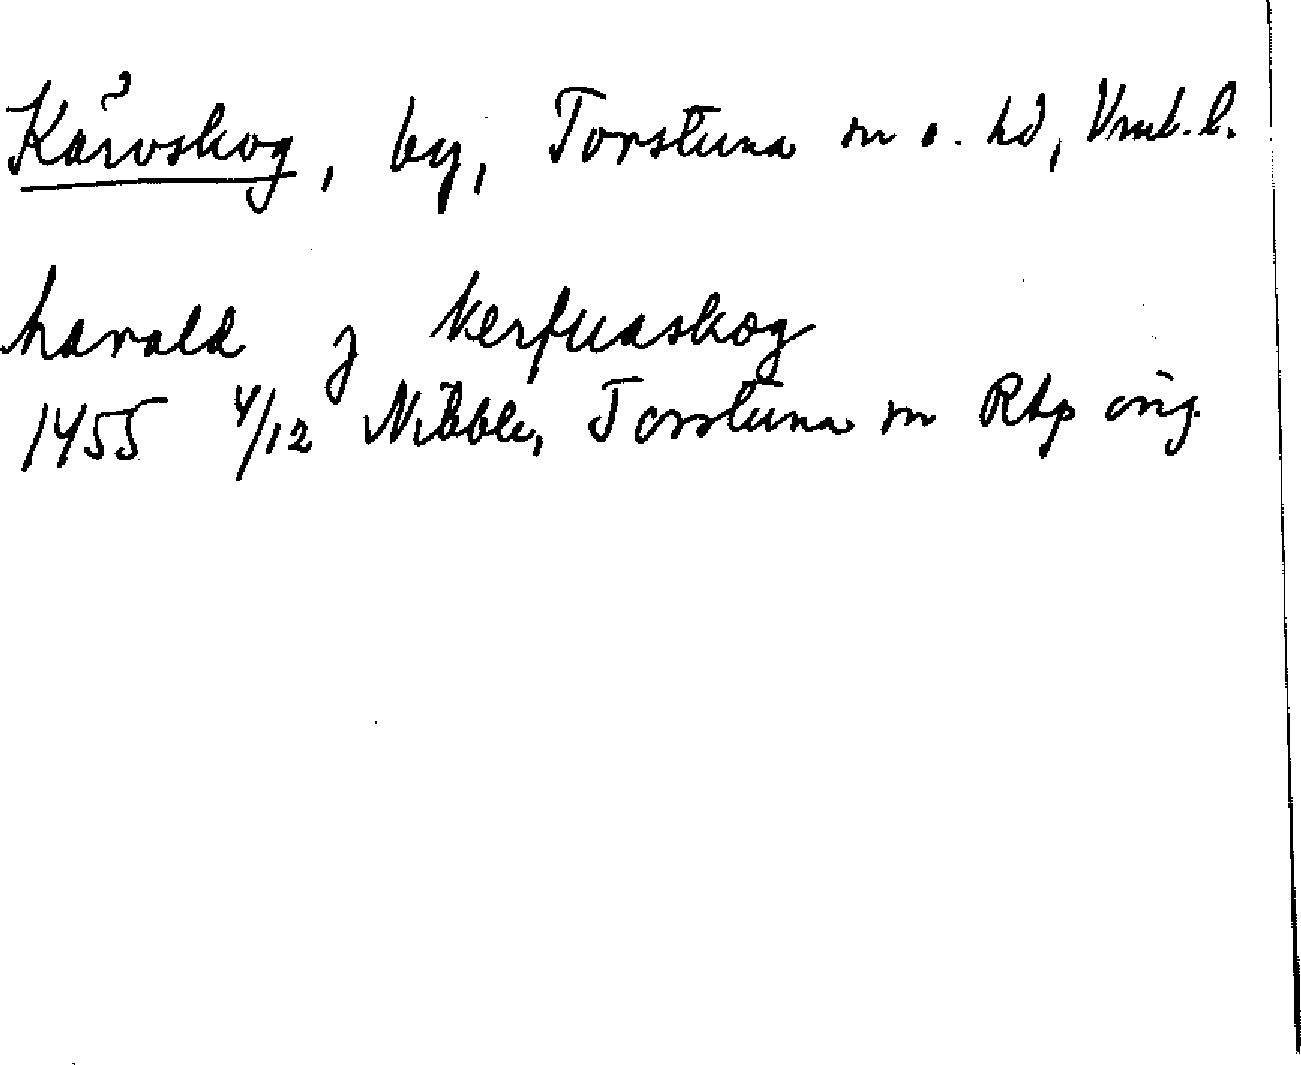 Kärvskog, by, Torstuna sn o. hd, Vml. l.
harald j kerfuaskog
1455 4/12 Nibble, Torstuna sn RAp orig.